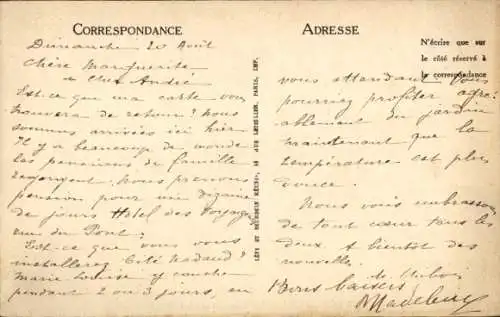 CORRESPONDANCE
Dimanche 20 Août
Chère Marguerite
& Cher André
Est-ce que ma carte vous
trouvera de retour? Nous
sommes arrivées ici hier
Il y a beaucoup de monde
les pensions de famille
regorgent. Nous prenons
pension pour une dizaine
de jours Hôtel des Voyageurs
rue du Pont.
Est-ce que vous vous
installerez Cité Nadaud?
Marie Louise y couche
pendant 2 ou 3 jours, en
LÉVY ET NEURDEIN RÉUNIS, 44 RUE LETELLIER, PARIS, IMP.
ADRESSE
N'écrire que sur
le côté réservé à
la correspondance
vous attendant. Vous
pourriez profiter agré-
ablement du jardin
maintenant que la
température est plus
douce.
Nous vous embrassons
de tout cœur tous les
deux. A bientôt des
nouvelles.
Bons baisers